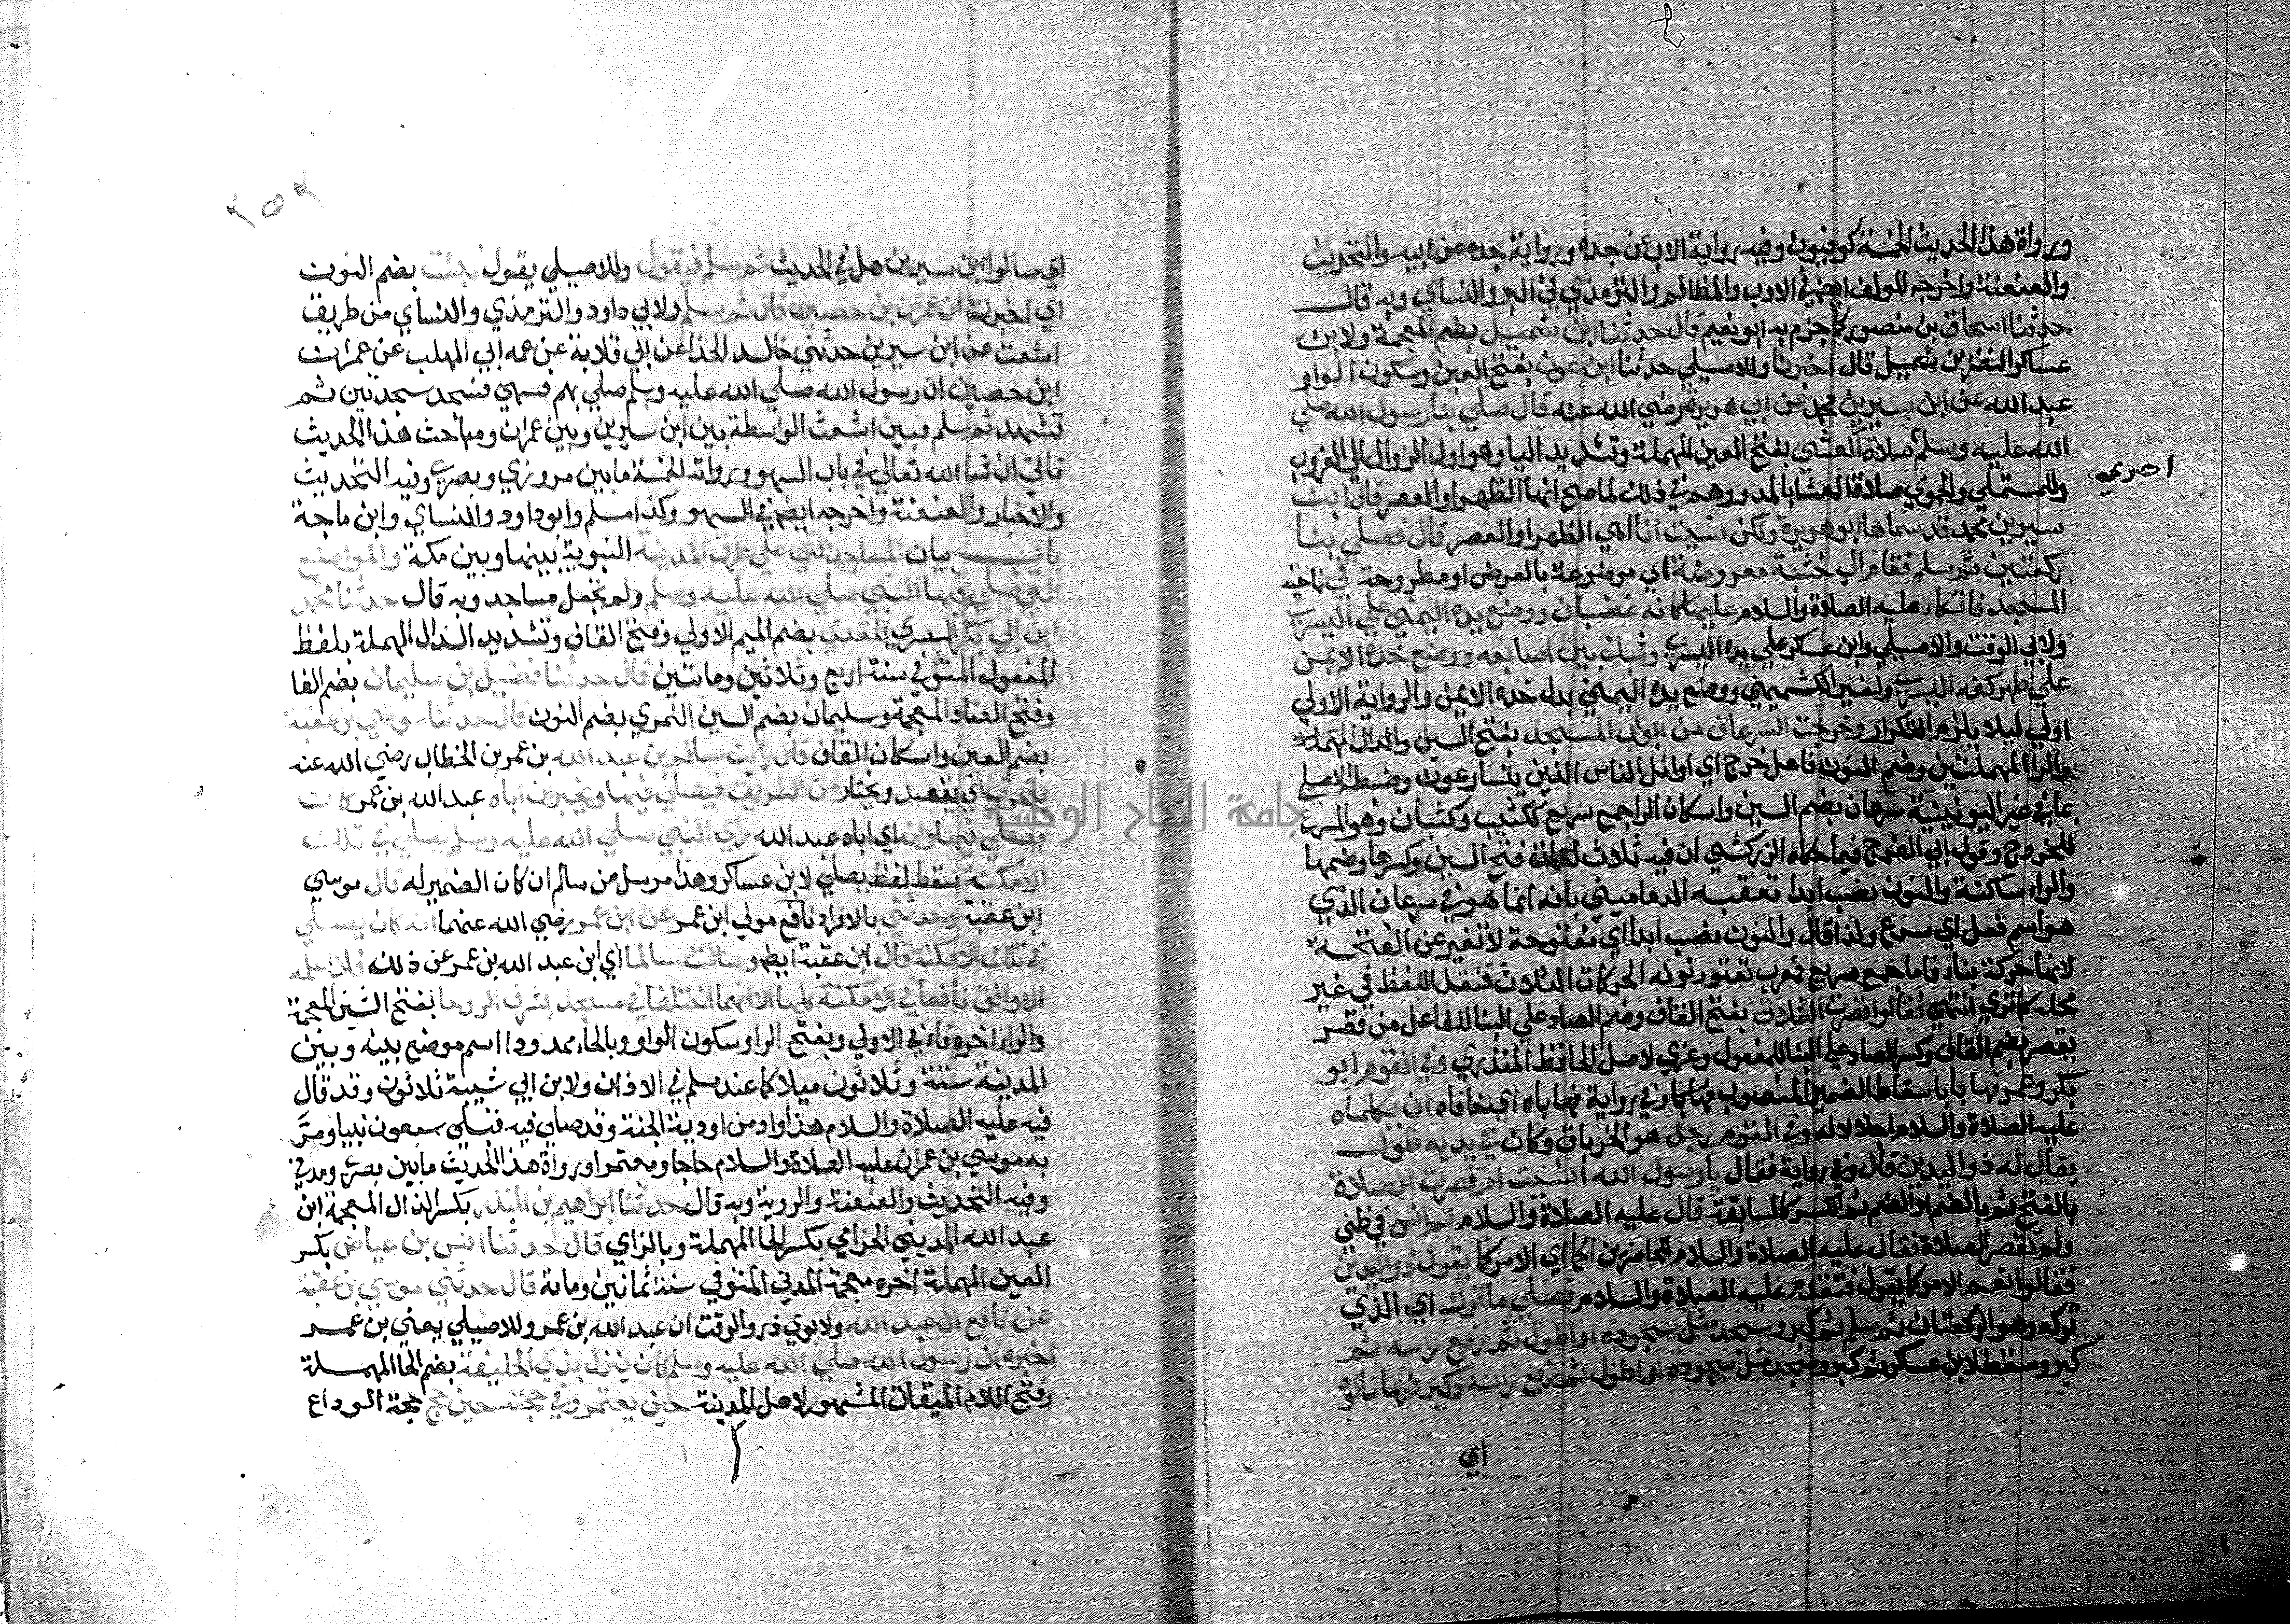 ورواة هذا الحديث الخمسة كوفيون وفيه رواية الاب عن جده ورواية جده عن ابيه والتحديث
والعنعنة واخرجه المولف ايضا في الادب والمظالم والترمذي في البر والنساي وبه قال
حدثنا اسحاق بن منصور كما جزم به ابو نعيم قال حدثنا ابن شميل بضم المعجمة ولابن
عساكر النضر بن شميل قال اخبرنا وللاصيلي حدثنا ابن عون بفتح العين وسكون الواو
عبد الله عن ابن سيرين محمد عن ابي هريرة رضي الله عنه قال صلي بنا رسول الله صلي
الله عليه وسلم صلاة العشي بفتح العين المهملة وتشديد اليا وهو اول الزوال الي الغروب
احدي
وللمستملي والحموي صلاة العشا بالمد ووهم في ذلك لما صح انها الظهر او العصر قال ابن
سيرين محمد قد سماها ابو هريرة ولكن نسيت انا اهي الظهر او العصر قال فصلي بنا
ركعتين ثم سلم فقام الي خشبة معروضة اي موضوعة بالعرض او مطروحة في ناحية
المسجد فاتكاء عليه الصلاة والسلام عليها كانه غضبان ووضع يده اليمني علي اليسري
ولابي الوقت والاصيلي وابن عساكر علي يده اليسري وشبك بين اصابعه ووضع خده الايمن
علي ظهر كفه اليسري ولغير الكشميهني ووضع يده اليمني بدل خده الايمن والرواية الاولي
اولي ليلا يلزم التكرار وخرجت السرعان من ابواب المسجد بفتح السين والدال المهملة
والرا المهملتين وضم النون فاعل خرج اي اوائل الناس الذين يتسارعون وضبطه الاصيلي
في غير اليونينية سرعان بضم السين واسكان الراجمع سريع ككثيب وكثبان وهو المسرع
للخروج وقول ابي الفرج فيما حكاه الزركشي ان فيه ثلاث لغات فتح السين وكسرها وضمها
والراء ساكنة والنون نصب ابدا تعقبه الدماميني بانه انما هو في سرعان الذي
هو اسم فعل اي سرع ولذا قال والنون نصب ابدا اي مفتوحة لا تغير عن الفتحة
لانها حركة بناء فاما جمع سريع فمعرب تعتور نونه الحركات الثلاث فنقل اللفظ في غير
محله كما تري انتهي فقالوا قصرت الصلاة بفتح القاف وضم الصاد علي البنا للفاعل من قصر
يقصر بضم القاف وكسر الصاد علي البنا للمفعول وعزي لاصل الحافظ المنذري وفي القوم ابو
بكر وعمر فهابا باسقاط الضمير المنصوب وفي رواية فهاباه اي خافاه ان يكلماه
عليه الصلاة والسلام اجلالا له وفي القوم رجل هو الخرباق وكان في يديه طول
يقال له ذو اليدين قال وفي رواية فقال يا رسول الله انسيت ام قصرت الصلاة
بالفتح ثم بالضم او الضم ثم الكسر كالسابقة قال عليه الصلاة والسلام لم انس في ظني
ولم تقصر الصلاة فقال عليه الصلاة والسلام للحاضرين اكما اي الامر كما يقول ذو اليدين
فقالوا نعم الامر كما يقول فتقدم عليه الصلاة والسلام فصلي ما ترك اي الذي
تركه وهو الركعتان ثم سلم ثم كبر وسجد مثل سجوده او اطول ثم رفع راسه ثم
كبر وسقط لابن عساكر ثم كبر وسجد مثل سجوده او اطول ثم رفع راسه وكبر فربما سالوه
اي
٢٥٢
اي سالوا ابن سيرين هل في الحديث ثم سلم فيقول وللاصيلي يقول نبئت بضم النون
اي اخبرت ان عمران بن حصين قال ثم سلم ولابي داود والترمذي والنساي من طريق
اشعث عن ابن سيرين حدثني خالد الحذا عن ابي قلابة عن عمه ابي المهلب عن عمران
ابن حصين ان رسول الله صلي الله عليه وسلم صلي بهم فسهي فسجد سجدتين ثم
تشهد ثم سلم فبين اشعث الواسطة بين ابن سيرين وبين عمران ومباحث هذا الحديث
تاتي ان شا الله تعالي في باب السهو ورواته الخمسة ما بين مروزي وبصري وفيه التحديث
والاخبار والعنعنة واخرجه ايضا في السهو وكذا مسلم وابو داود والنساي وابن ماجة
باب بيان المساجد التي علي طرق المدينة النبوية بينها وبين مكة والمواضع
التي صلي فيها النبي صلي الله عليه وسلم ولم تجعل مساجد وبه قال حدثنا محمد
ابن ابي بكر البصري المقدمي بضم الميم الاولي وفتح القاف وتشديد الدال المهملة بلفظ
المفعول المتوفي سنة اربع وثلاثين ومايتين قال حدثنا فضيل بن سليمان بضم الفا
وفتح الضاد المعجمة وسليمان بضم السين النمري بضم النون قال حدثنا موسي بن عقبة
بضم العين واسكان القاف قال رايت سالم بن عبد الله بن عمر بن الخطاب رضي الله عنه
يتحري اي يقصد ويختار من الطريق فيصلي فيها ويخبر ان اباه عبد الله بن عمر كان
يصلي فيها وانه اي اباه عبد الله راي النبي صلي الله عليه وسلم يصلي في تلك
الامكنة سقط لفظ يصلي لابن عساكر وهذا مرسل من سالم ان كان الضمير له قال موسي
ابن عقبة وحدثني بالافراد نافع مولي ابن عمر عن ابن عمر رضي الله عنهما انه كان يصلي
في تلك الامكنة قال ابن عقبة ايضا وسالت سالما اي ابن عبد الله بن عمر عن ذلك فلا اعلمه
الا وافق نافعا في الامكنة كلها الا انهما اختلفا في مسجد بشرف الروحا بفتح الشين المعجمة
والراء اخره فاء في الاولي وبفتح الرا وسكون الواو وبالحاء ممدودا اسم موضع بينه وبين
المدينة ستة وثلاثون ميلا كما عند مسلم في الاذان ولابن ابي شيبة ثلاثون وقد قال
فيه عليه الصلاة والسلام هذا واد من اودية الجنة وقد صلي فيه قبلي سبعون نبيا ومرّ
به موسي بن عمران عليه الصلاة والسلام حاجا ومعتمرا ورواة هذا الحديث ما بين بصري ومدني
وفيه التحديث والعنعنة والروية وبه قال حدثنا ابراهيم بن المنذر بكسر الذال المعجمة ابن
عبد الله المديني الحزامي بكسر الحا المهملة وبالزاي قال حدثنا انس بن عياض بكسر
العين المهملة اخره معجمة المدني المتوفي سنة ثمانين ومائة قال حدثني موسي بن عقبة
عن نافع ان عبد الله ولابوي ذر والوقت ان عبد الله بن عمر وللاصيلي يعني بن عمر
اخبره ان رسول الله صلي الله عليه وسلم كان ينزل بذي الحليفة بضم الحا المهملة
وفتح اللام الميقات المشهور لاهل المدينة حين يعتمر وفي حجته حين حج حجة الوداع
جامعة النجاح الوطنية